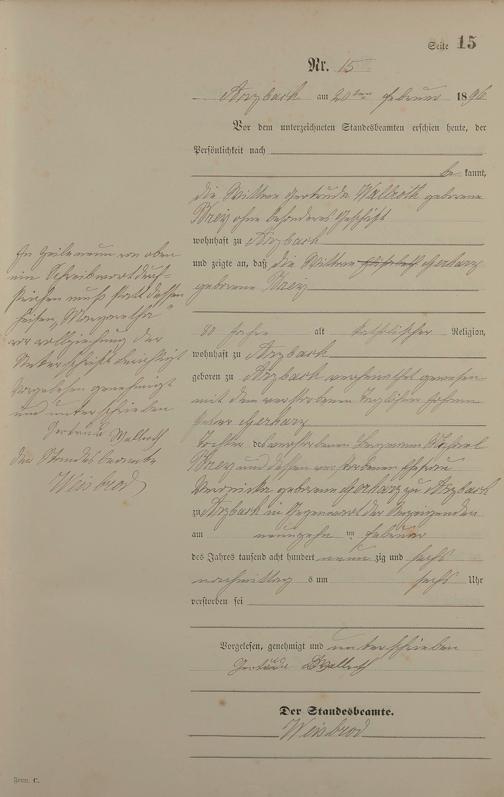 Seite 15
Nr. 15
Arzbach am 20ten Februar 1896
Vor dem unterzeichneten Standesbeamten erschien heute, der
Persönlichkeit nach
be kannt,
die Wittwe Gertruda Wallroth geborene
Brey ohne besonderes Geschäft
wohnhaft zu Arzbach
und zeigte an, daß die Wittwe Gerharz
geborene Brey
80 Jahre alt katholischer Religion,
wohnhaft zu Arzbach
geboren zu Arzbach verheirathet gewesen
mit dem verstorbenen Taglöhner Johann
Peter Gerharz
Tochter des verstorbenen Bergmann
Brey und dessen verstorbenen Ehefrau
geborene Gerharz zu Arzbach
zu Arzbach in Gegenwart der Anzeigenden
am neunzehn ten Februar
des Jahres tausend acht hundert neun zig und sechs
nachmittag s um sechs Uhr
verstorben sei
Vorgelesen, genehmigt und unterschrieben
Gertruda Wallroth
Der Standesbeamte.
Weisbrod
In Zeile neun von oben
ein Schreibwort durch-
strichen muß statt dessen
heißen „Margaretha"
vor vollziehung der
Unterschrift berichtigt
Vorgelesen genehmigt
und unterschrieben
Gertruda Wallroth
Der Standesbeamte
Weisbrod
Form. C.